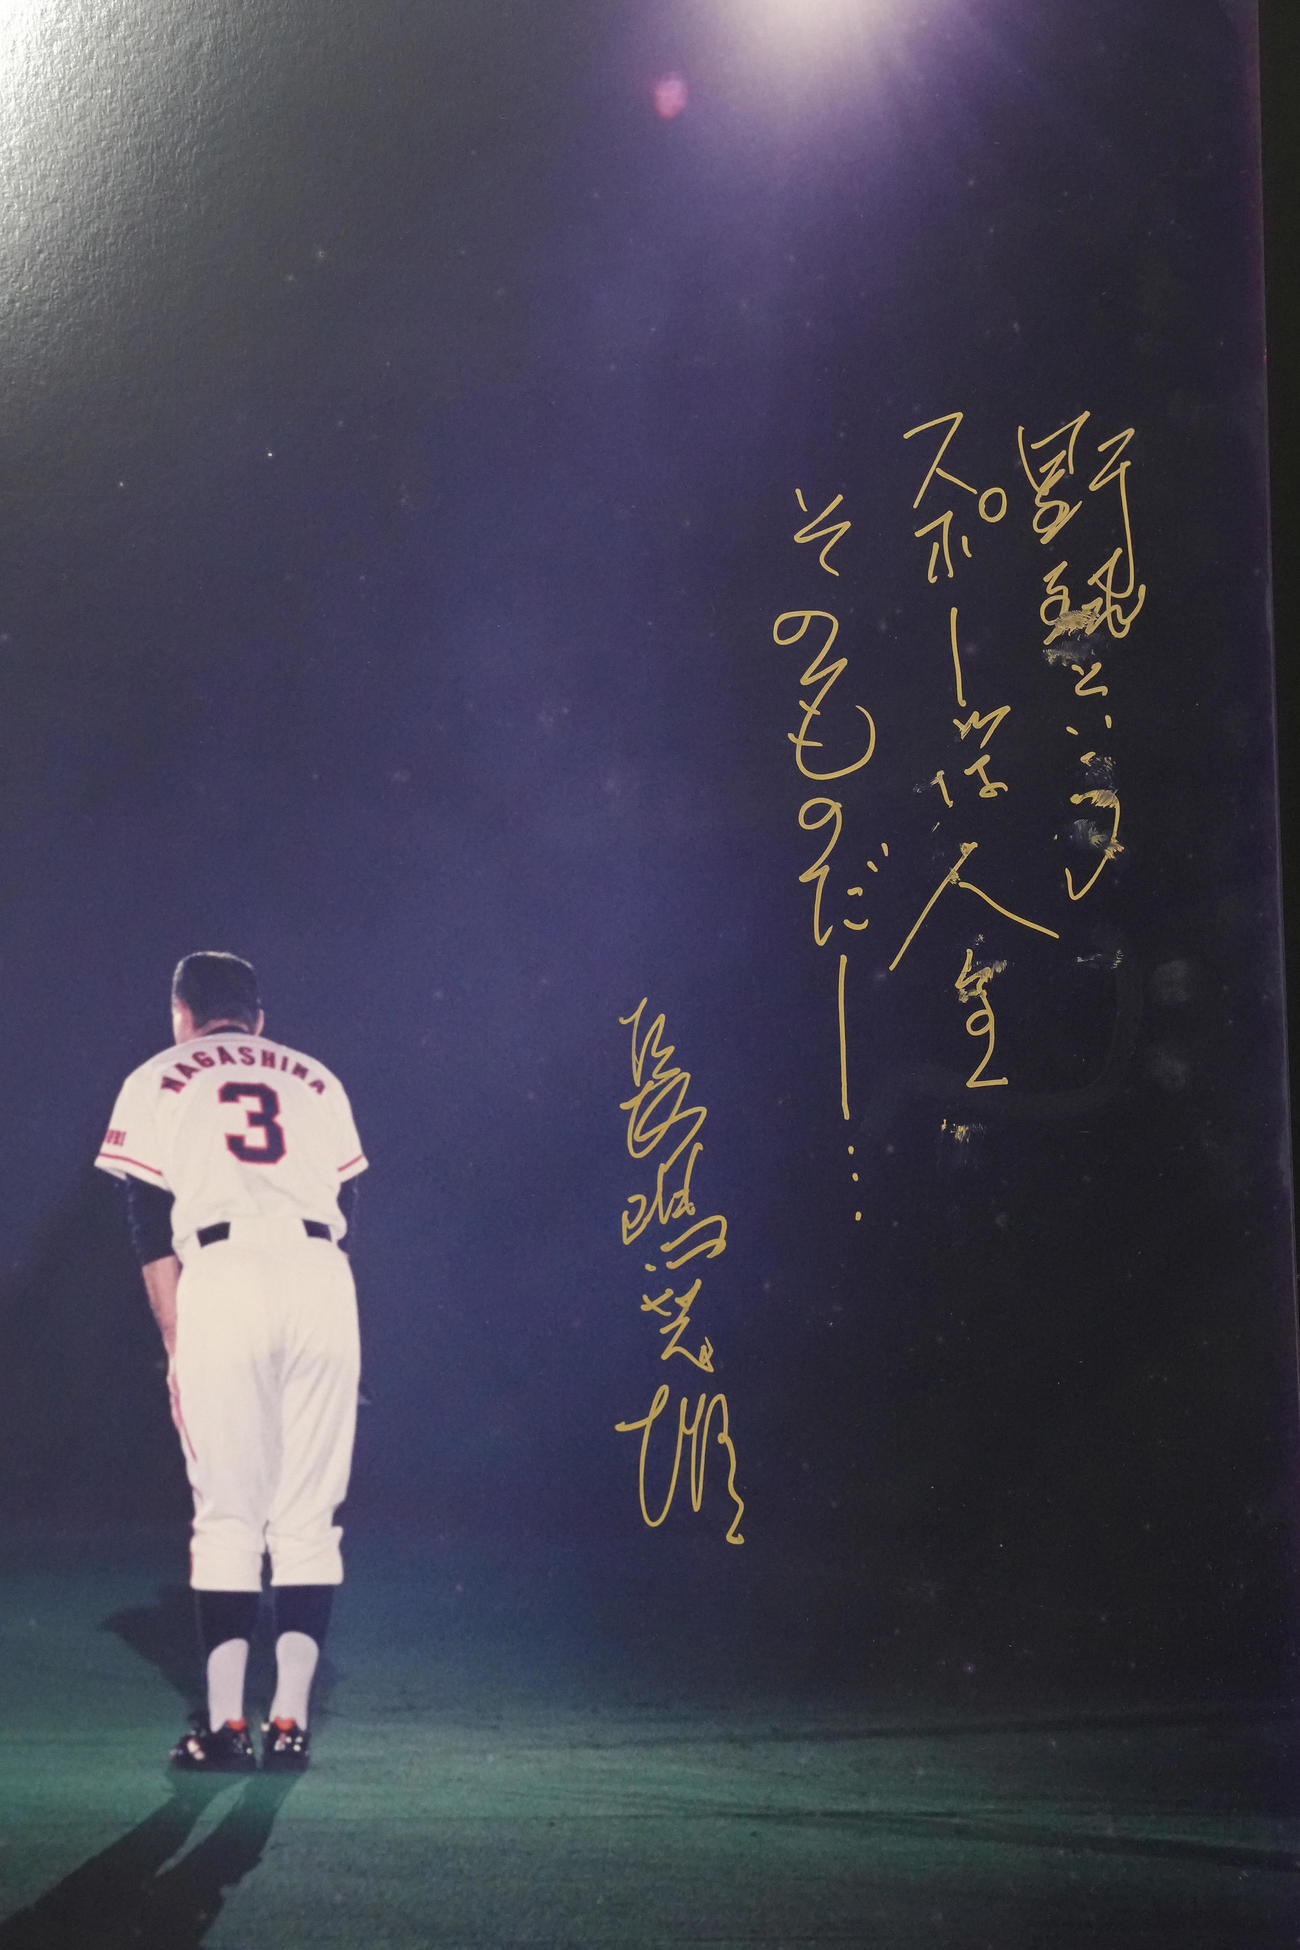 野球という
スポーツは人生
そのものだー…
長嶋茂雄
NAGASHIMA
3